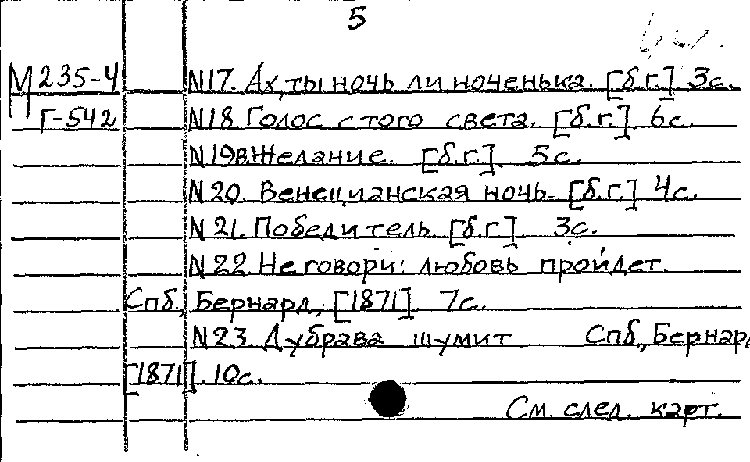 5
М 235-4 N17. Ах, ты ночь ли ноченька. [б.г.] 3с.
Г-542 N18 Голос с того света. [б.г.] 6с.
N19в Желание. [б.г.] 5с.
N20. Венецианская ночь. [б.г.] 4с.
N21. Победитель. [б.г.] 3с.
N22. Не говори: любовь пройдет.
Спб., Бернард, [1871]. 7с.
N23. Дубрава шумит Спб., Бернард
[1871]. 10с.
См. след. карт.